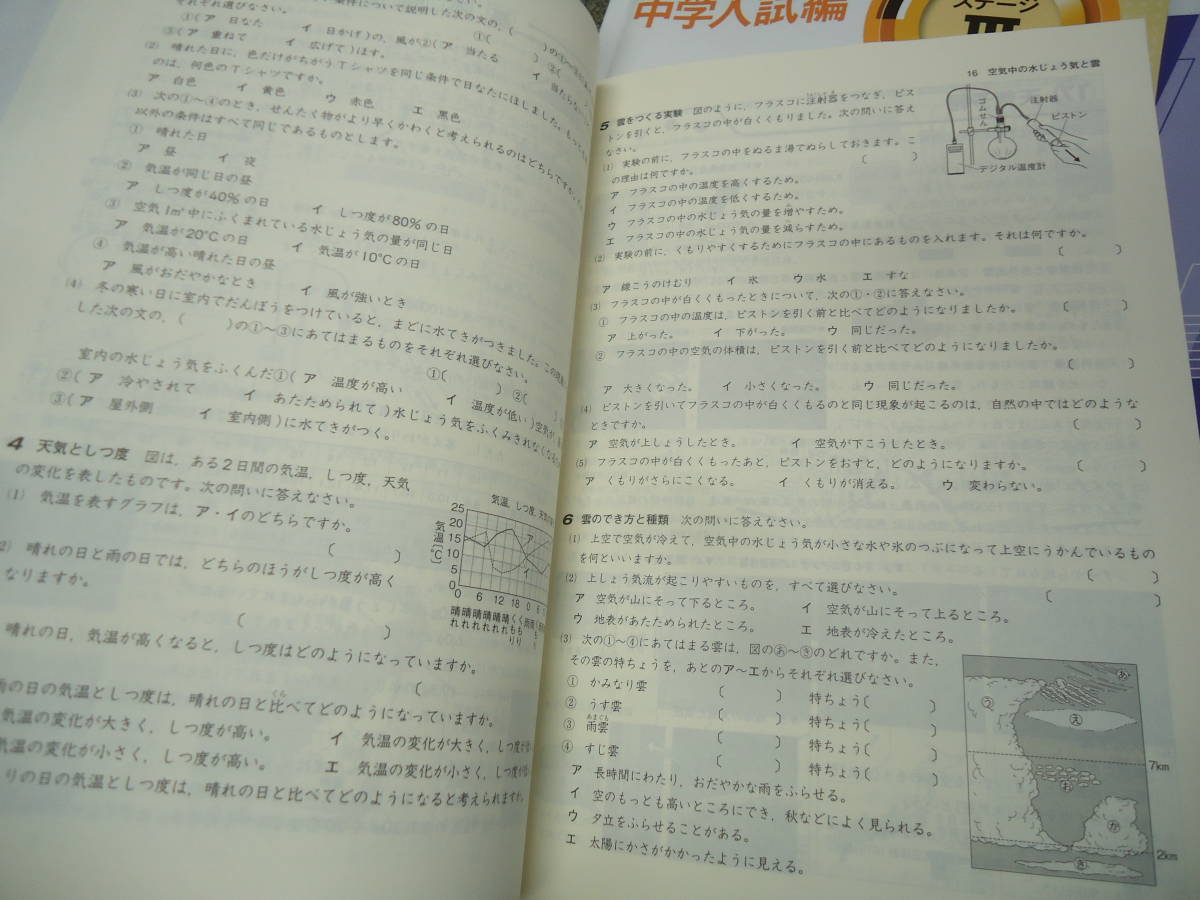 中学入試編
ステージ
III
条件について説明した次の文の,
それぞれ選びなさい。 ①( ) ②(
①(ア 日なた イ 日かげ)の, 風が②(ア 当たる イ 当たらな
③(ア 重ねて イ 広げて)ほす。
(2) 晴れた日に, 色だけがちがうTシャツを同じ条件で日なたにほしました。
のは, 何色のTシャツですか。
ア 白色 イ 黄色 ウ 赤色 エ 黒色
(3) 次の①〜④のとき, せんたく物がより早くかわくと考えられるのはどちらですか。
以外の条件はすべて同じであるものとします。
① 晴れた日
ア 昼 イ 夜
② 気温が同じ日の昼
ア しつ度が40%の日 イ しつ度が80%の日
③ 空気1m³中にふくまれている水じょう気の量が同じ日
ア 気温が20℃の日 イ 気温が10℃の日
④ 気温が高い晴れた日の昼
ア 風がおだやかなとき イ 風が強いとき
(4) 冬の寒い日に室内でだんぼうをつけていると, まどに水てきがつきました。この
した次の文の, ( )の①〜③にあてはまるものをそれぞれ選びなさい。
①( ) ②(
室内の水じょう気をふくんだ①(ア 温度が高い イ 温度が低い)空気が,
②(ア 冷やされて イ あたためられて)水じょう気をふくみきれなくなる
③(ア 屋外側 イ 室内側)に水てきがつく。
4 天気としつ度 図は, ある2日間の気温, しつ度, 天気
の変化を表したものです。次の問いに答えなさい。
(1) 気温を表すグラフは, ア・イのどちらですか。
( )
晴れの日と雨の日では, どちらのほうがしつ度が高く
なりますか。
( )
晴れの日, 気温が高くなると, しつ度はどのようになっていますか。
(
の日の気温としつ度は, 晴れの日と比べてどのようになっていますか。
気温の変化が大きく, しつ度が高い。 イ 気温の変化が大きく, しつ度が
気温の変化が小さく, しつ度が高い。 エ 気温の変化が小さく, しつ度が
りの日の気温としつ度は, 晴れの日と比べてどのようになると考えられますか。
気温, しつ度, 天気の
気温(℃)
25
20
15
10
5
0
0 6 12 18 0 6
ア
イ
16 空気中の水じょう気と雲
5 雲をつくる実験 図のように, フラスコに注射器をつなぎ, ピス
トンを引くと, フラスコの中が白くくもりました。次の問いに答え
なさい。
(1) 実験の前に, フラスコの中をぬるま湯でぬらしておきます。こ
の理由は何ですか。 ( )
ア フラスコの中の温度を高くするため。
イ フラスコの中の温度を低くするため。
ウ フラスコの中の水じょう気の量を増やすため。
エ フラスコの中の水じょう気の量を減らすため。
(2) 実験の前に, くもりやすくするためにフラスコの中にあるものを入れます。それは何ですか。
( )
ア 線こうのけむり イ 氷 ウ 水 エ すな
(3) フラスコの中が白くくもったときについて, 次の①・②に答えなさい。
① フラスコの中の温度は, ピストンを引く前と比べてどのようになりましたか。 ( )
ア 上がった。 イ 下がった。 ウ 同じだった。
② フラスコの中の空気の体積は, ピストンを引く前と比べてどのようになりましたか。
( )
ア 大きくなった。 イ 小さくなった。 ウ 同じだった。
(4) ピストンを引いてフラスコの中が白くくもるのと同じ現象が起こるのは, 自然の中ではどのような
ときですか。 ( )
ア 空気が上しょうしたとき。 イ 空気が下こうしたとき。
(5) フラスコの中が白くくもったあと, ピストンをおすと, どのようになりますか。 ( )
ア くもりがさらにこくなる。 イ くもりが消える。 ウ 変わらない。
注射器
ピストン
ゴムせん
デジタル温度計
6 雲のでき方と種類 次の問いに答えなさい。
(1) 上空で空気が冷えて, 空気中の水じょう気が小さな水や氷のつぶになって上空にうかんでいるもの
を何といいますか。 ( )
(2) 上しょう気流が起こりやすいものを, すべて選びなさい。 ( )
ア 空気が山にそって下るところ。 イ 空気が山にそって上るところ。
ウ 地表があたためられたところ。 エ 地表が冷えたところ。
(3) 次の①〜④にあてはまる雲は, 図のあ〜きのどれですか。また,
その雲の特ちょうを, あとのア〜エからそれぞれ選びなさい。
① かみなり雲 ( ) 特ちょう( )
② うす雲 ( ) 特ちょう( )
③ 雨雲 ( ) 特ちょう( )
④ すじ雲 ( ) 特ちょう( )
ア 長時間にわたり, おだやかな雨をふらせる。
イ 空のもっとも高いところにでき, 秋などによく見られる。
ウ 夕立をふらせることがある。
エ 太陽にかさがかかったように見える。
あ
う
え
お
か
き
7km
2km